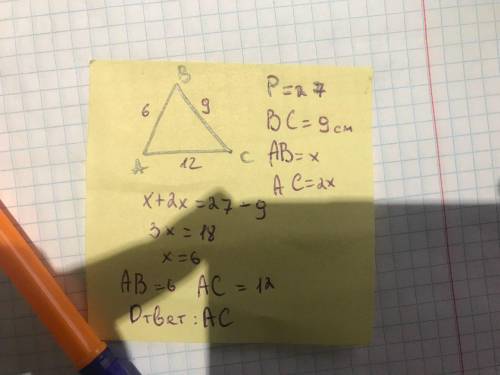 B
6
9
A
12
C
P=27
BC=9см
AB=x
AC=2x
x+2x=27-9
3x=18
x=6
AB=6 AC=12
Ответ: AC